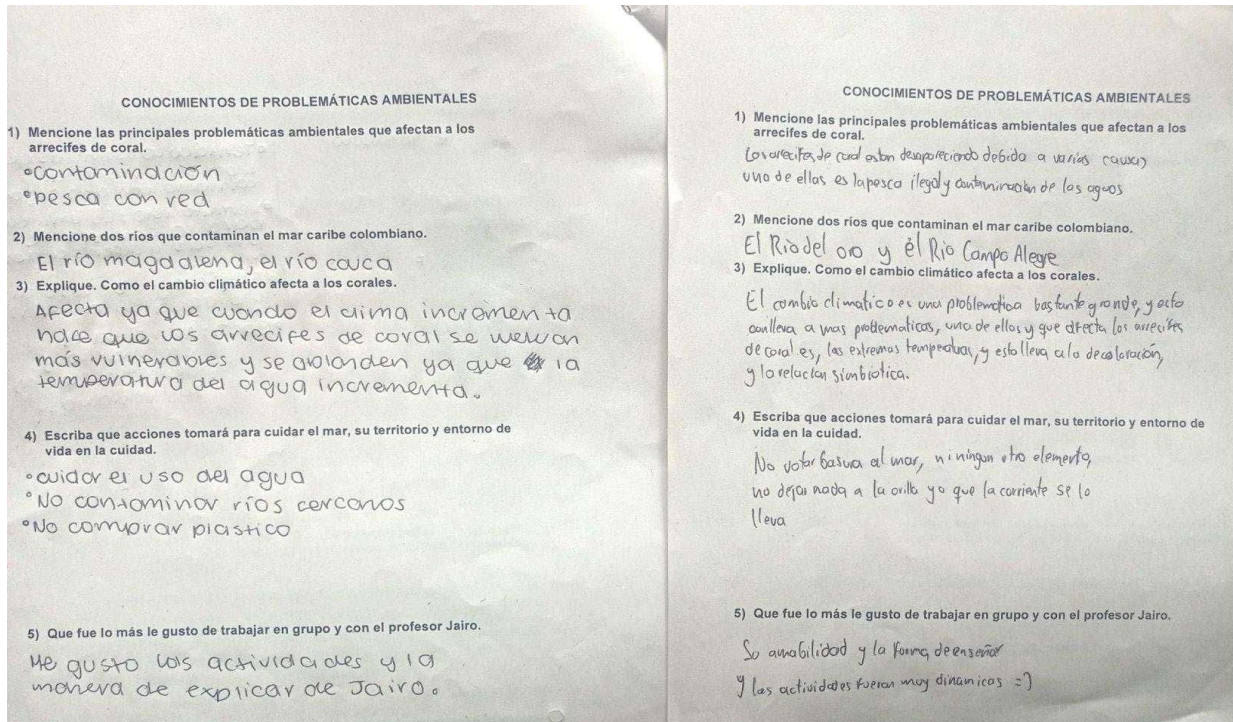 CONOCIMIENTOS DE PROBLEMÁTICAS AMBIENTALES
1) Mencione las principales problemáticas ambientales que afectan a los
arrecifes de coral.
•contaminación
•pesca con red
2) Mencione dos ríos que contaminan el mar caribe colombiano.
El río magdalena, el río cauca
3) Explique. Como el cambio climático afecta a los corales.
Afecta ya que cuando el clima incrementa
hace que los arrecifes de coral se vuelvan
más vulnerables y se ablanden ya que la
temperatura del agua incrementa.
4) Escriba que acciones tomará para cuidar el mar, su territorio y entorno de
vida en la cuidad.
•cuidar el uso del agua
•No contaminar ríos cercanos
•No comprar plastico
5) Que fue lo más le gusto de trabajar en grupo y con el profesor Jairo.
Me gusto las actividades y la
manera de explicar de Jairo.
CONOCIMIENTOS DE PROBLEMÁTICAS AMBIENTALES
1) Mencione las principales problemáticas ambientales que afectan a los
arrecifes de coral.
Los arrecifes de coral estan desapareciendo debido a varias causas
una de ellas es la pesca ilegal y contaminación de las aguas
2) Mencione dos ríos que contaminan el mar caribe colombiano.
El Rio del oro y él Rio Campo Alegre
3) Explique. Como el cambio climático afecta a los corales.
El cambio climatico es una problematica bastante grande, y esto
conlleva a mas problematicas, uno de ellos y que afecta los arrecifes
de coral es, las extremas temperaturas, y esto lleva a la decoloración,
y la relacion simbiotica.
4) Escriba que acciones tomará para cuidar el mar, su territorio y entorno de
vida en la cuidad.
No votar basura al mar, ni ningun otro elemento,
no dejar nada a la orilla ya que la corriente se lo
lleva
5) Que fue lo más le gusto de trabajar en grupo y con el profesor Jairo.
Su amabilidad y la forma de enseñar
y las actividades fueron muy dinamicas =)